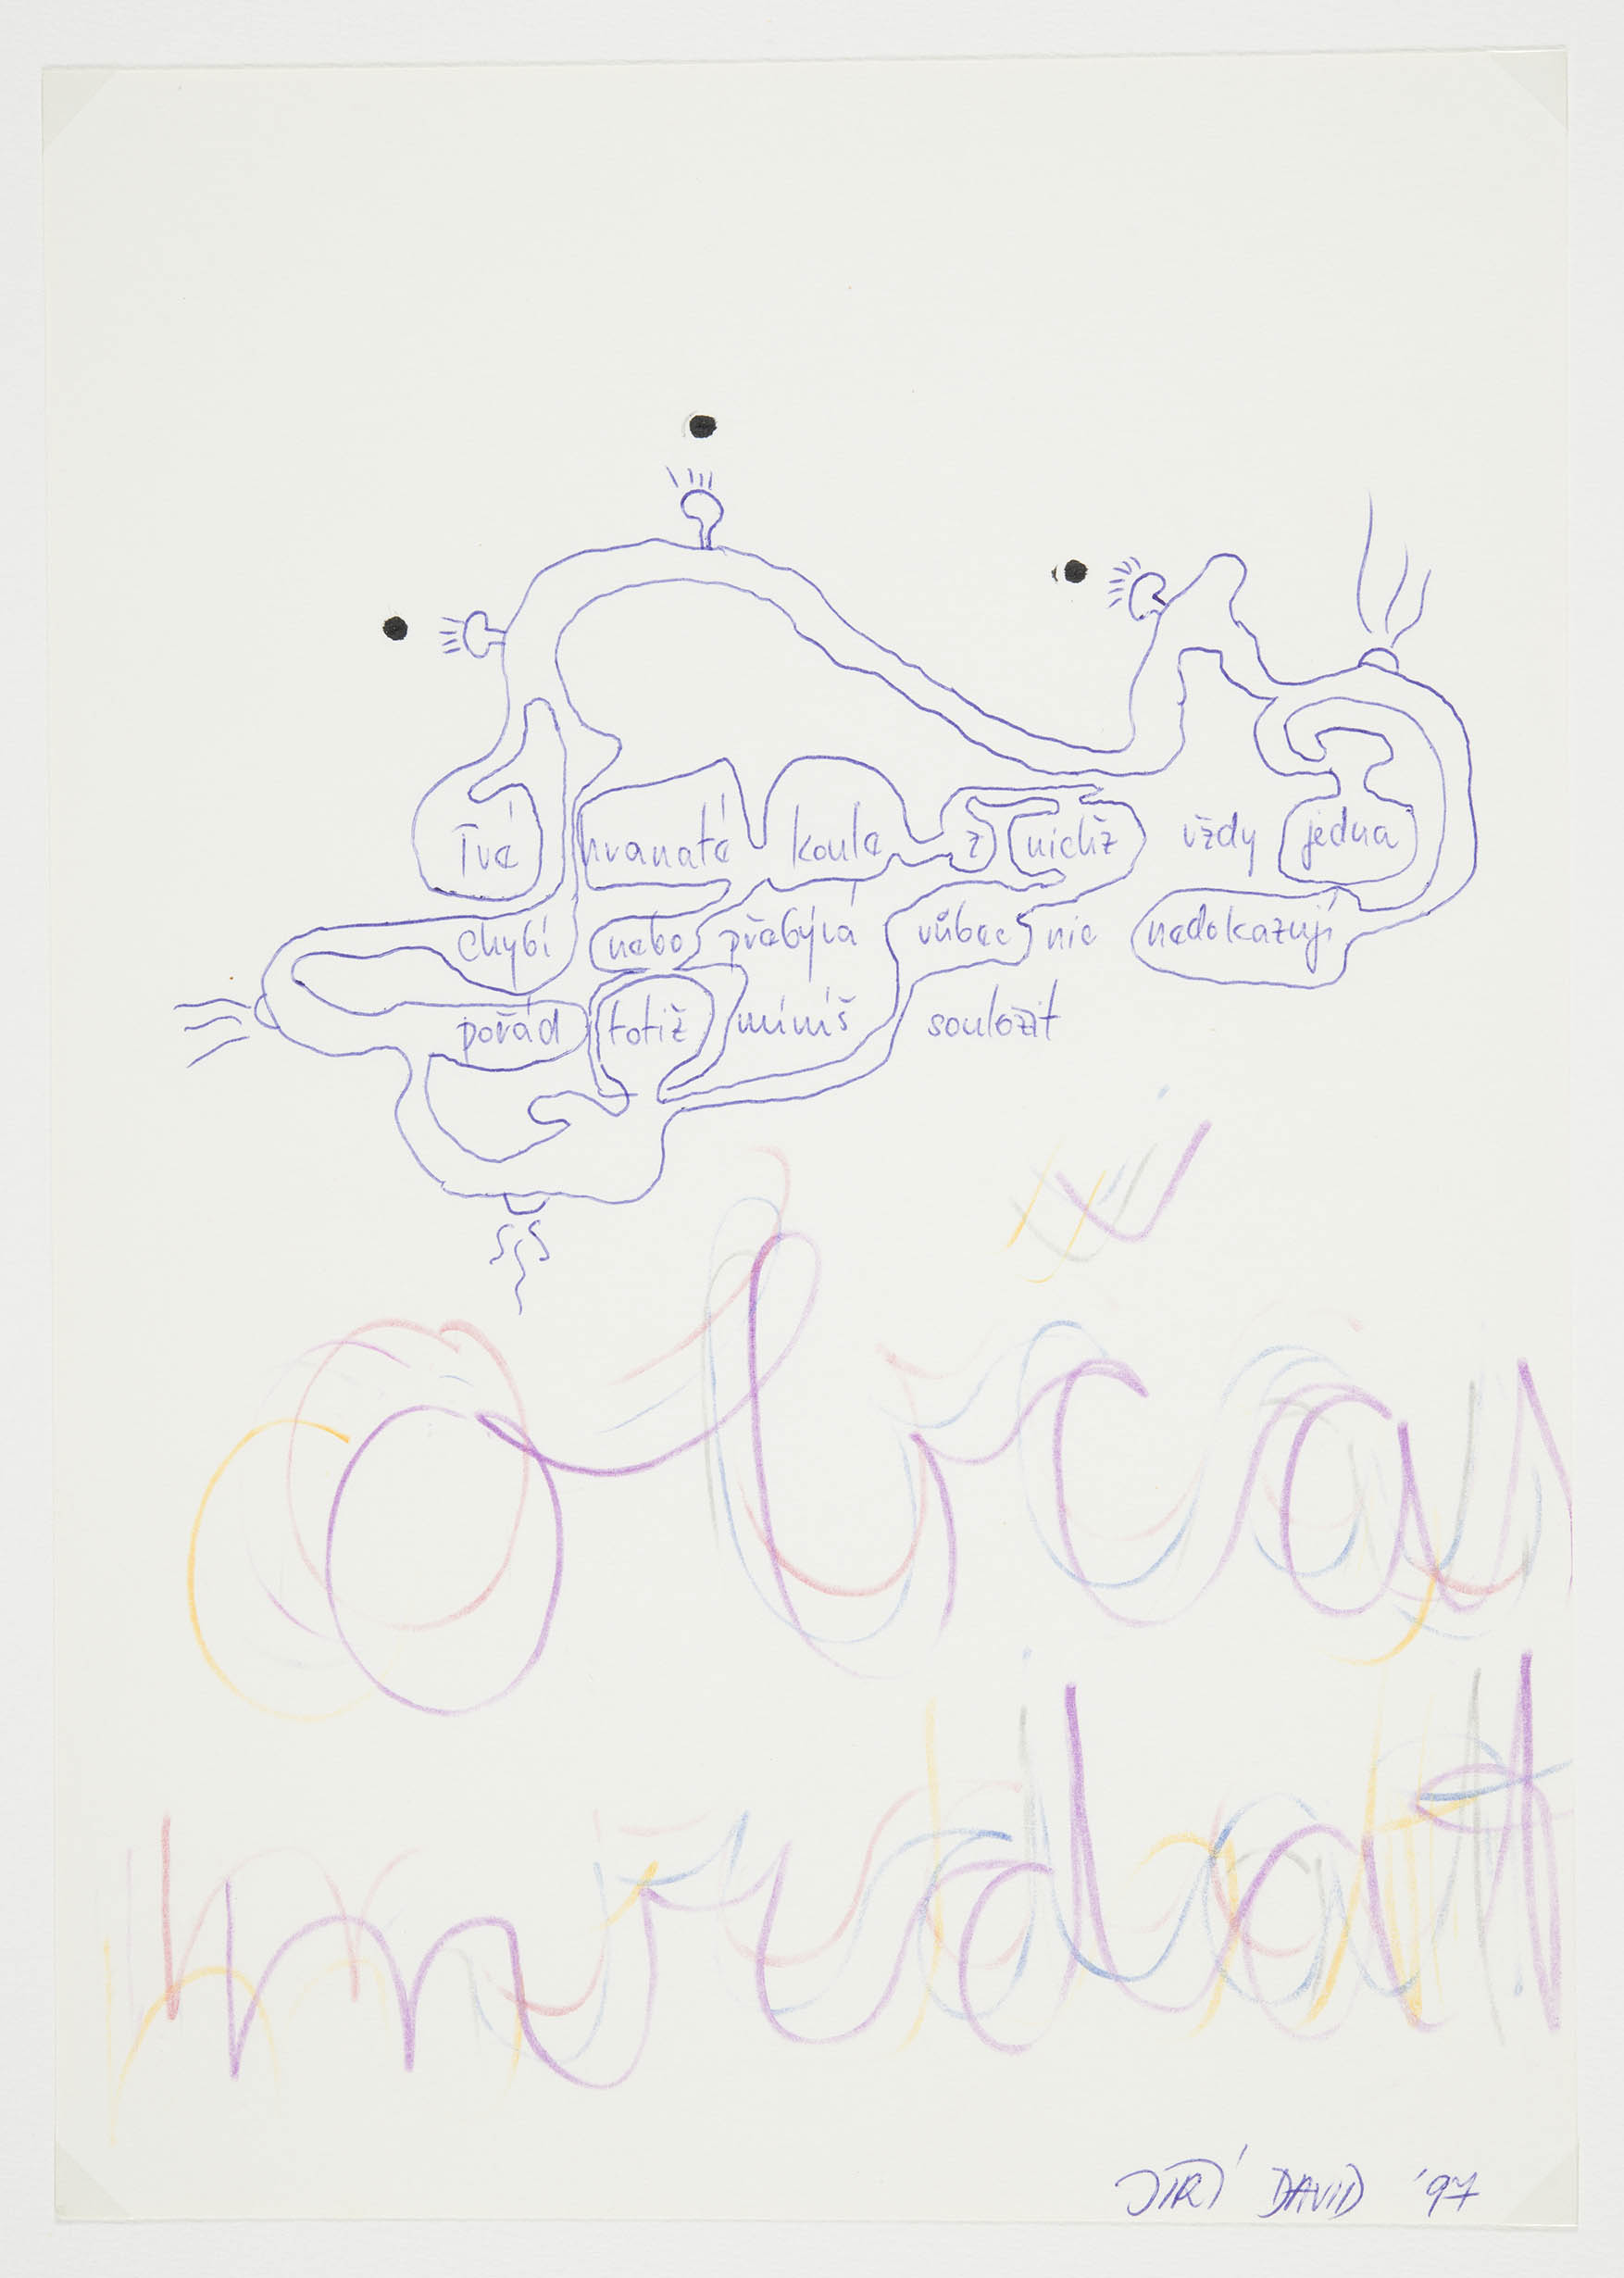 Tvé hranaté koule z nichž vždy jedna
chybí nebo přebývá vůbec nic nedokazují
pořád totiž míníš souložit
občas
mrdat
JIŘÍ DAVID '97